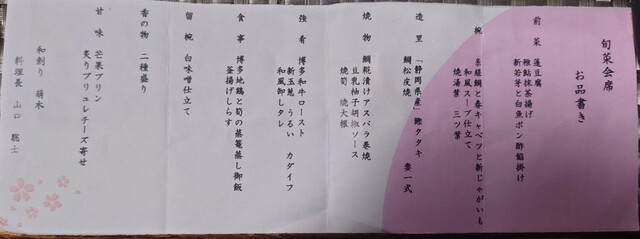 旬菜会席
お品書き
前菜 蓬豆腐
稚鮎抹茶揚げ
新若芽と白魚ポン酢餡掛け
椀 桑縒鯛と春キャベツと新じゃがいも
和風スープ仕立て
焼湯葉 三ツ葉
造里 「静岡県産」鰹タタキ 妻一式
鯛松皮焼
焼物 鯛糀漬けアスパラ巻焼
豆乳柚子胡椒ソース
焼筍 焼大根
強肴 博多和牛ロースト
新玉葱 うるい カダイフ
和風卸しタレ
食事 博多地鶏と筍の蒸篭蒸し御飯
釜揚げしらす
留椀 白味噌仕立て
香の物 二種盛り
甘味 芒果プリン
炙りブリュレチーズ寄せ
和創り 萌木
料理長 山口 聡士